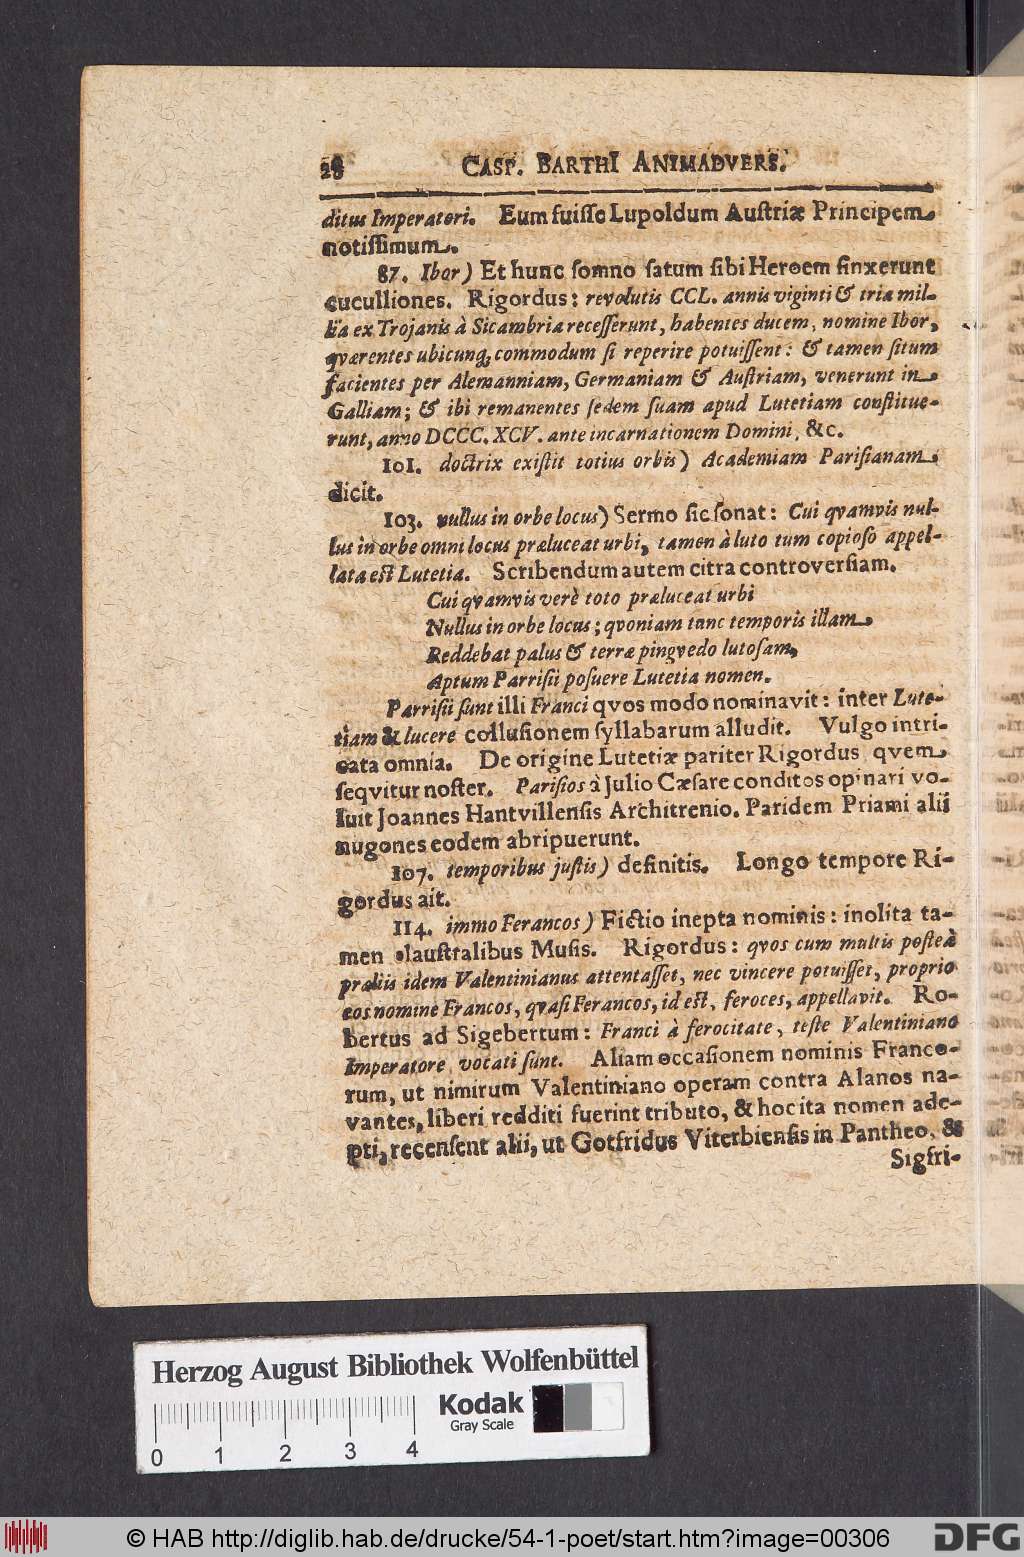 28 CASP. BARTHI ANIMADVERS.
ditus Imperatori. Eum fuiſſe Lupoldum Auſtriæ Principem
notiſſimum.
87. Ibor) Et hunc ſomno ſatum ſibi Heroem finxerunt
cuculliones. Rigordus: revolutis CCL. annis viginti & tria mil-
lia ex Trojanis à Sicambria receſſerunt, habentes ducem, nomine Ibor,
qværentes ubicunq; commodum ſi reperire potuiſſent: & tamen ſitum
facientes per Alemanniam, Germaniam & Auſtriam, venerunt in
Galliam; & ibi remanentes ſedem ſuam apud Lutetiam conſtitue-
runt, anno DCCC. XCV. ante incarnationem Domini, &c.
101. doctrix exiſtit totius orbis) Academiam Pariſianam
dicit.
103. nullus in orbe locus) Sermo ſic ſonat: Cui qvamvis nul-
lus in orbe omni locus præluceat urbi, tamen à luto tum copioſo appel-
lata eſt Lutetia. Scribendum autem citra controverſiam.
Cui qvamvis verè toto præluceat urbi
Nullus in orbe locus; qvoniam tunc temporis illam
Reddebat palus & terræ pingvedo lutoſam,
Aptum Parriſii poſuere Lutetia nomen.
Parriſii ſunt illi Franci qvos modo nominavit: inter Lute-
tiam & lucere colluſionem ſyllabarum alludit. Vulgo intri-
cata omnia. De origine Lutetiæ pariter Rigordus, qvem
ſeqvitur noſter. Pariſios à Julio Cæſare conditos opinari vo-
luit Joannes Hantvillenſis Architrenio. Paridem Priami alii
nugones eodem abripuerunt.
107. temporibus juſtis) definitis. Longo tempore Ri-
gordus ait.
114. immo Ferancos) Fictio inepta nominis: inolita ta-
men clauſtralibus Muſis. Rigordus: qvos cum multis poſteà
præliis idem Valentinianus attentaſſet, nec vincere potuiſſet, proprio
eos nomine Francos, qvaſi Ferancos, id eſt, feroces, appellavit. Ro-
bertus ad Sigebertum: Franci à ferocitate, teſte Valentiniano
Imperatore, vocati ſunt. Aliam occaſionem nominis Franco-
rum, ut nimirum Valentiniano operam contra Alanos na-
vantes, liberi redditi fuerint tributo, & hoc ita nomen ade-
pti, recenſent alii, ut Gotfridus Viterbienſis in Pantheo, &
Sigfri-
Herzog August Bibliothek Wolfenbüttel
Kodak
Gray Scale
0 1 2 3 4
© HAB http://diglib.hab.de/drucke/54-1-poet/start.htm?image=00306
DFG